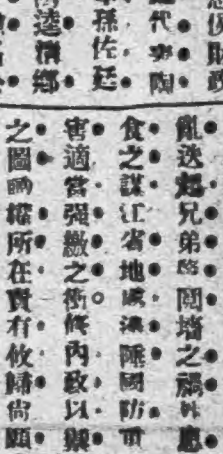 財政
代
孫佐廷
清鄉
亂迭起兄弟鬩墙之禍外應
食之謀江省地處陲國防重
害適當强鄰之衝修內政以禦
之圖權所在實有攸歸尙願